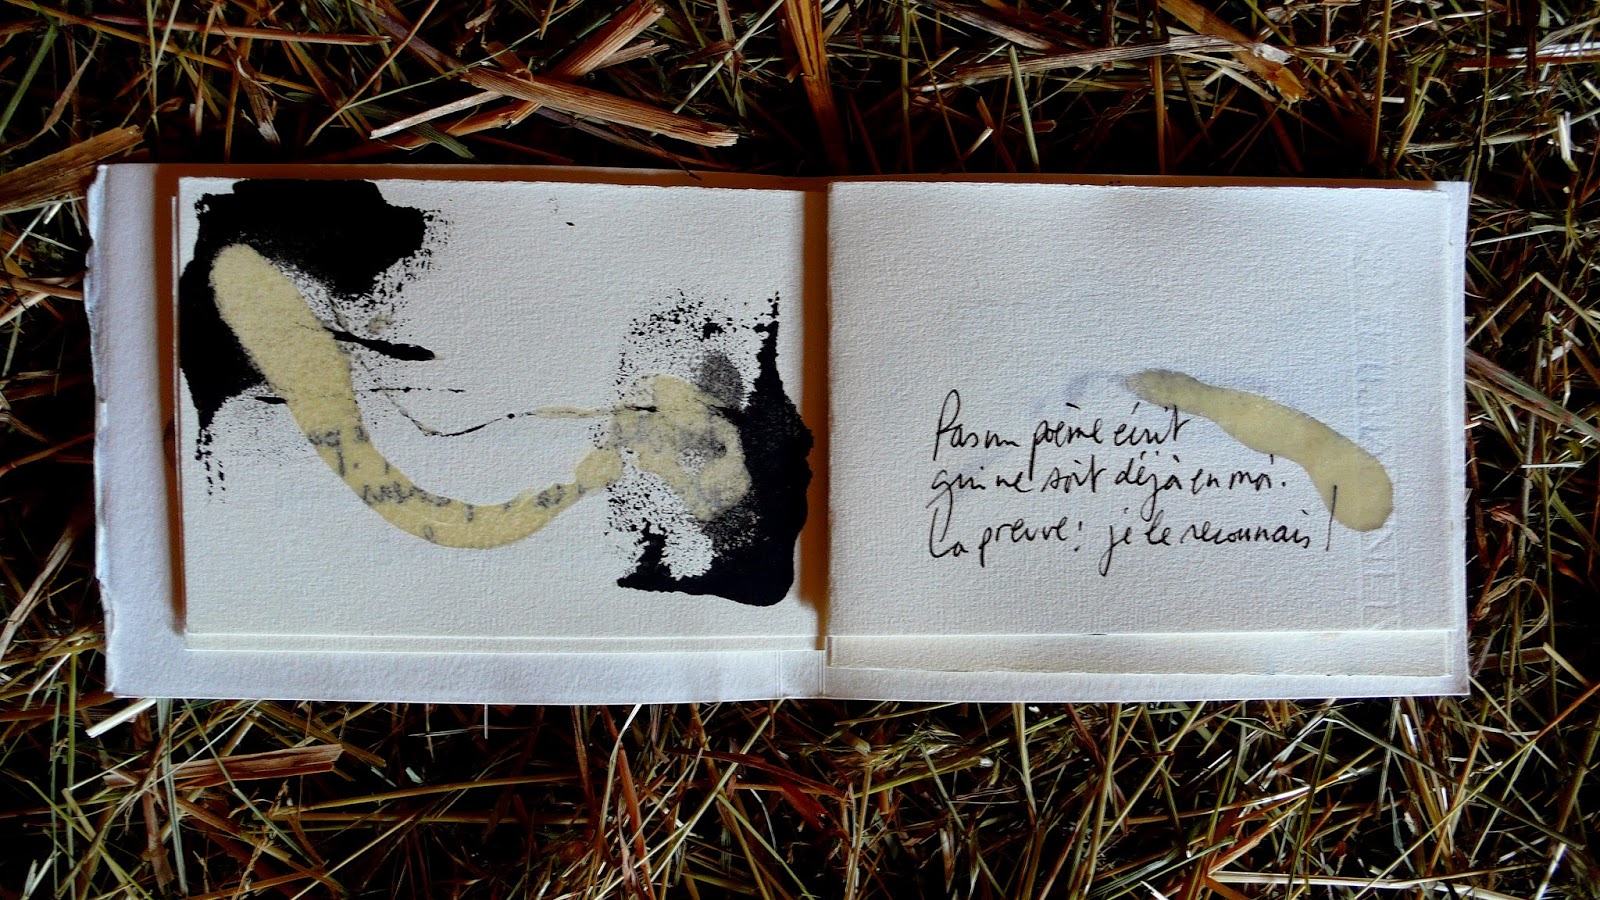 Pas un poème écrit
qui ne soit déjà en moi.
La preuve : je le reconnais !